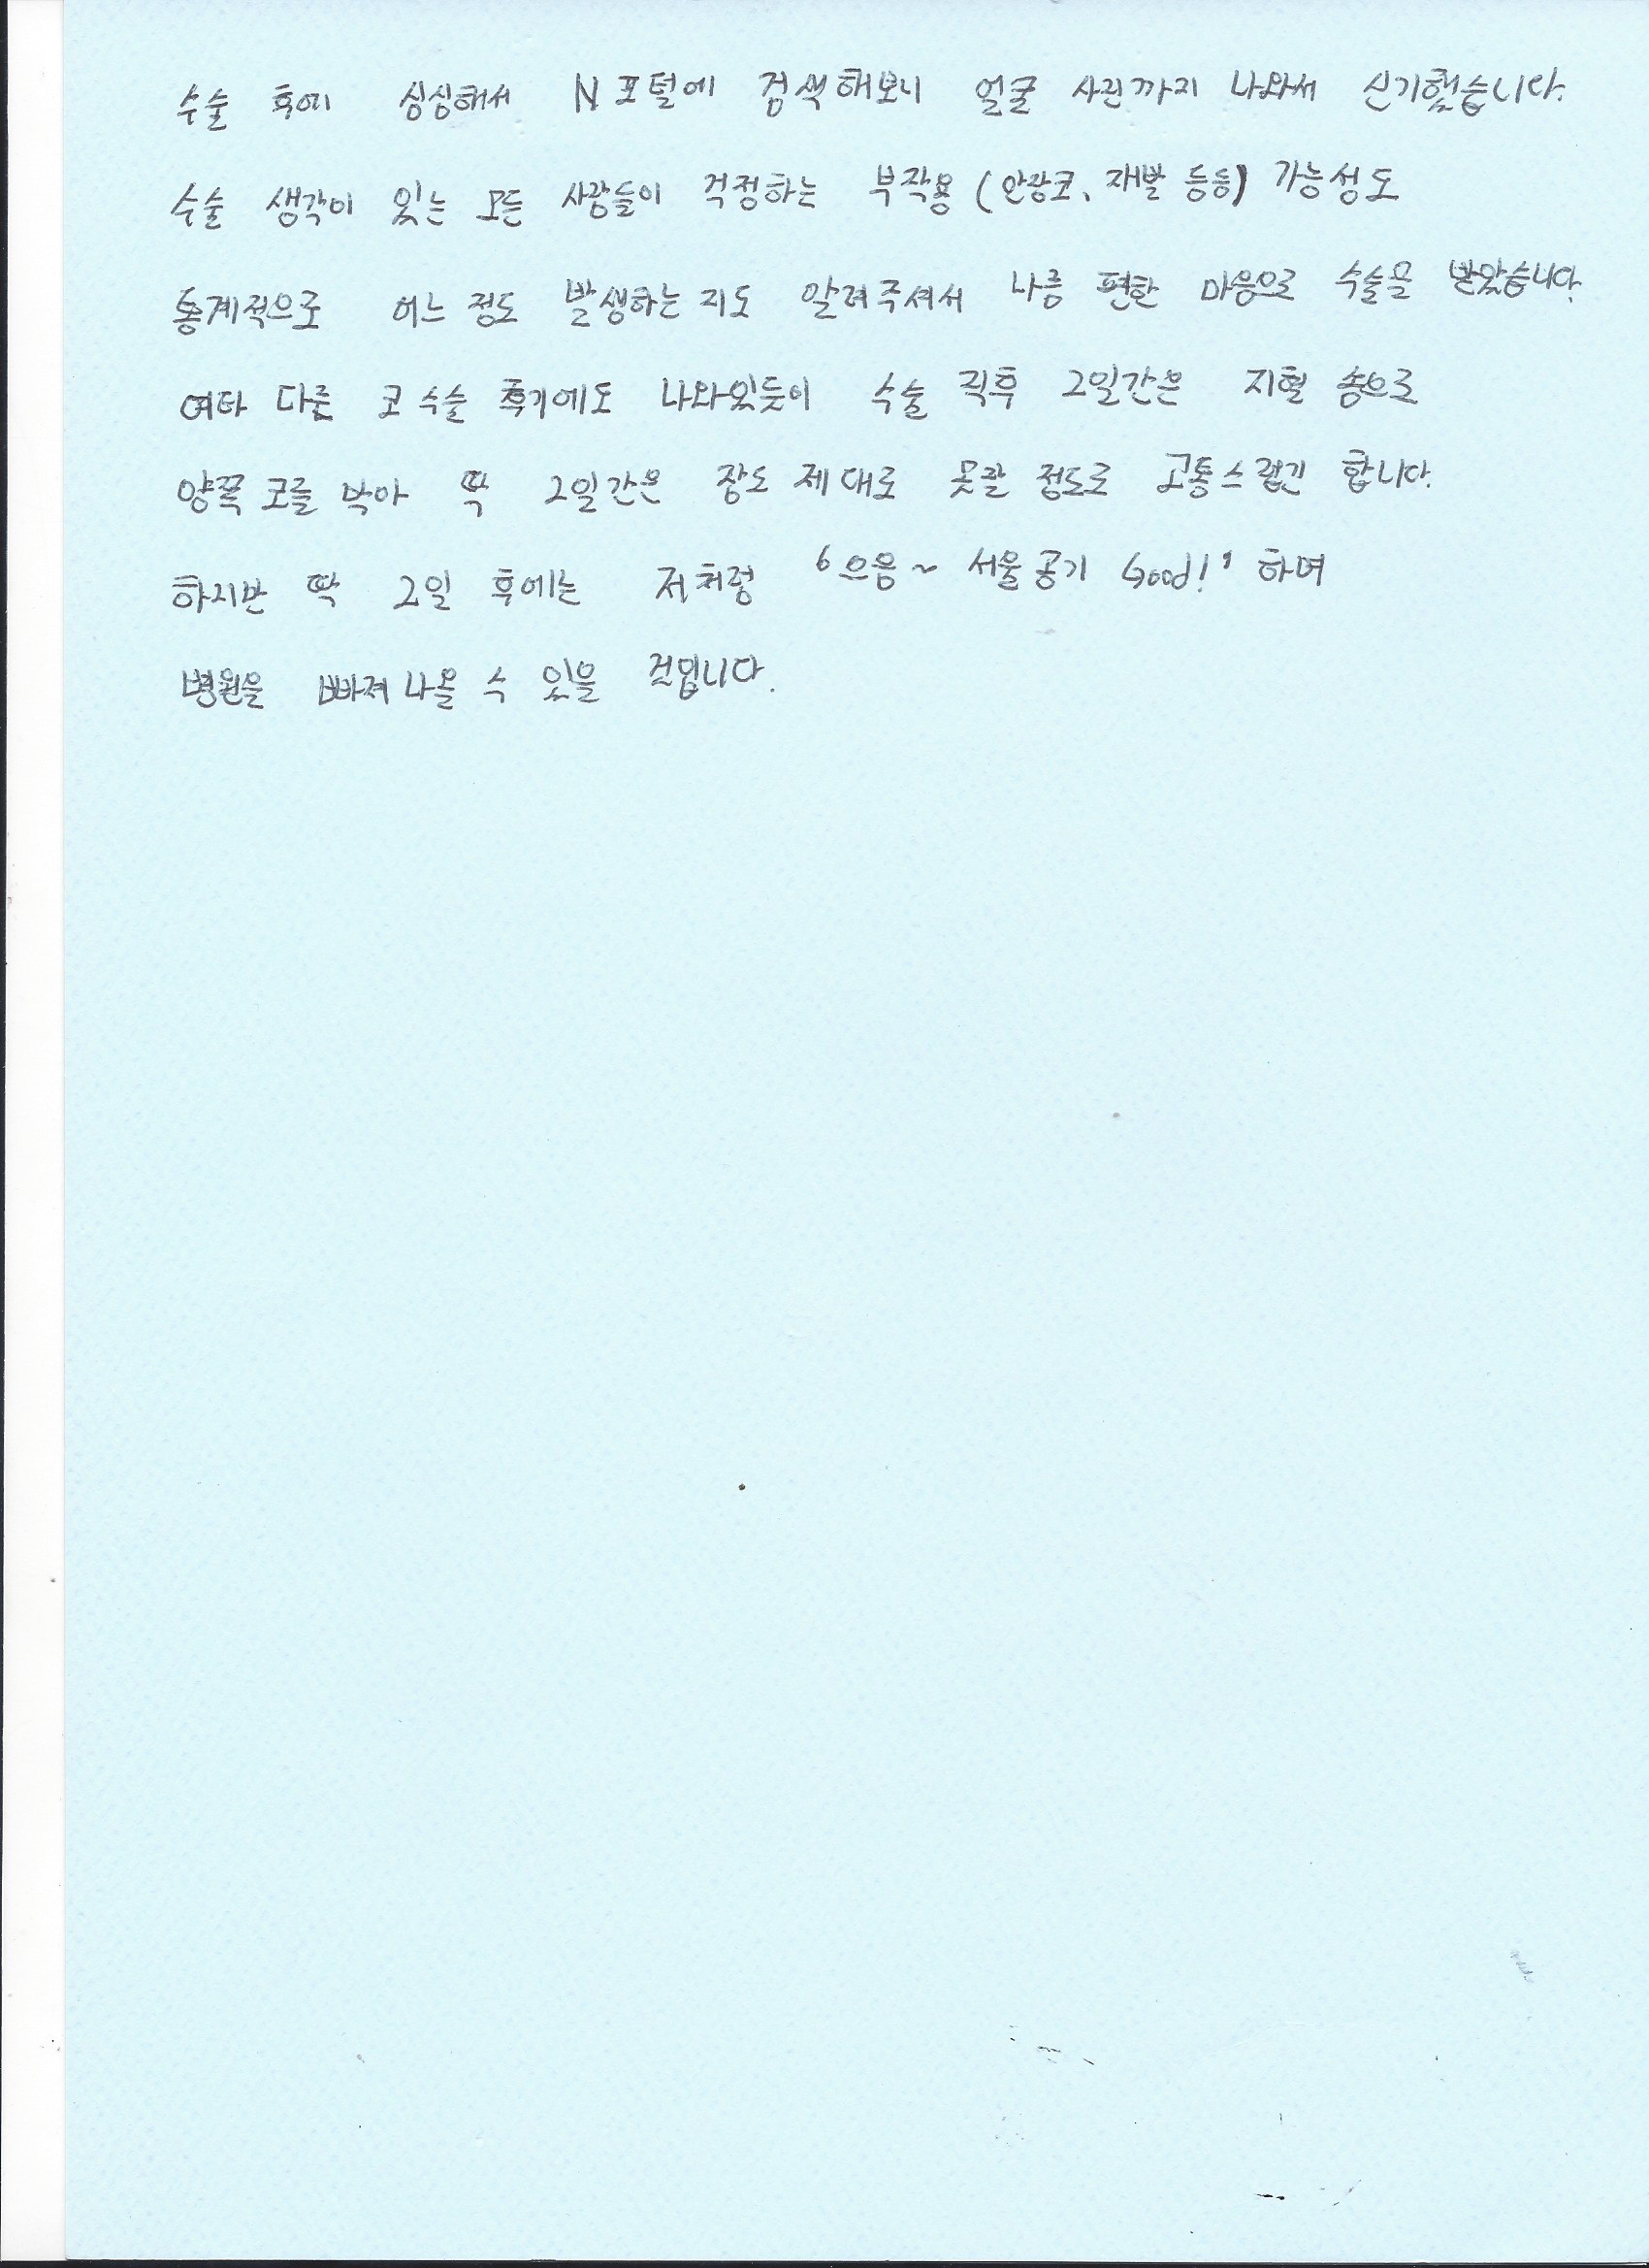 수술 후에 심심해서 N포털에 검색해보니 얼굴 사진까지 나와서 신기했습니다.
수술 생각이 있는 모든 사람들이 걱정하는 부작용 (안장코, 재발 등등) 가능성도
통계적으로 어느 정도 발생하는 지도 알려주셔서 나름 편한 마음으로 수술을 받았습니다.
여타 다른 코 수술 후기에도 나와있듯이 수술 직후 2일간은 지혈 솜으로
양쪽 코를 막아 딱 2일간은 잠도 제대로 못잘 정도로 고통스럽긴 합니다.
하지만 딱 2일 후에는 저처럼 '으음~ 서울공기 Good!' 하며
병원을 빠져나올 수 있을 것입니다.